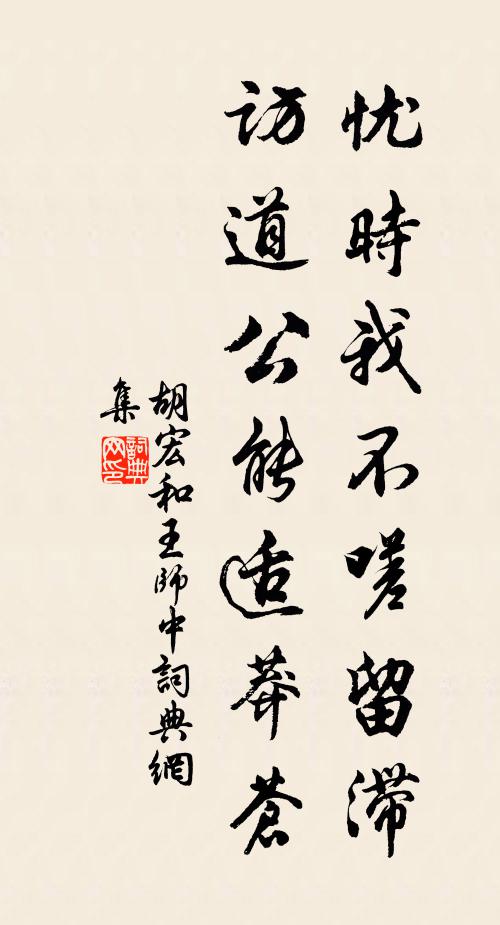 忧時我不嗟留滞
访道公能适莽苍
胡宏和王師中詞典網
集
詞典網印